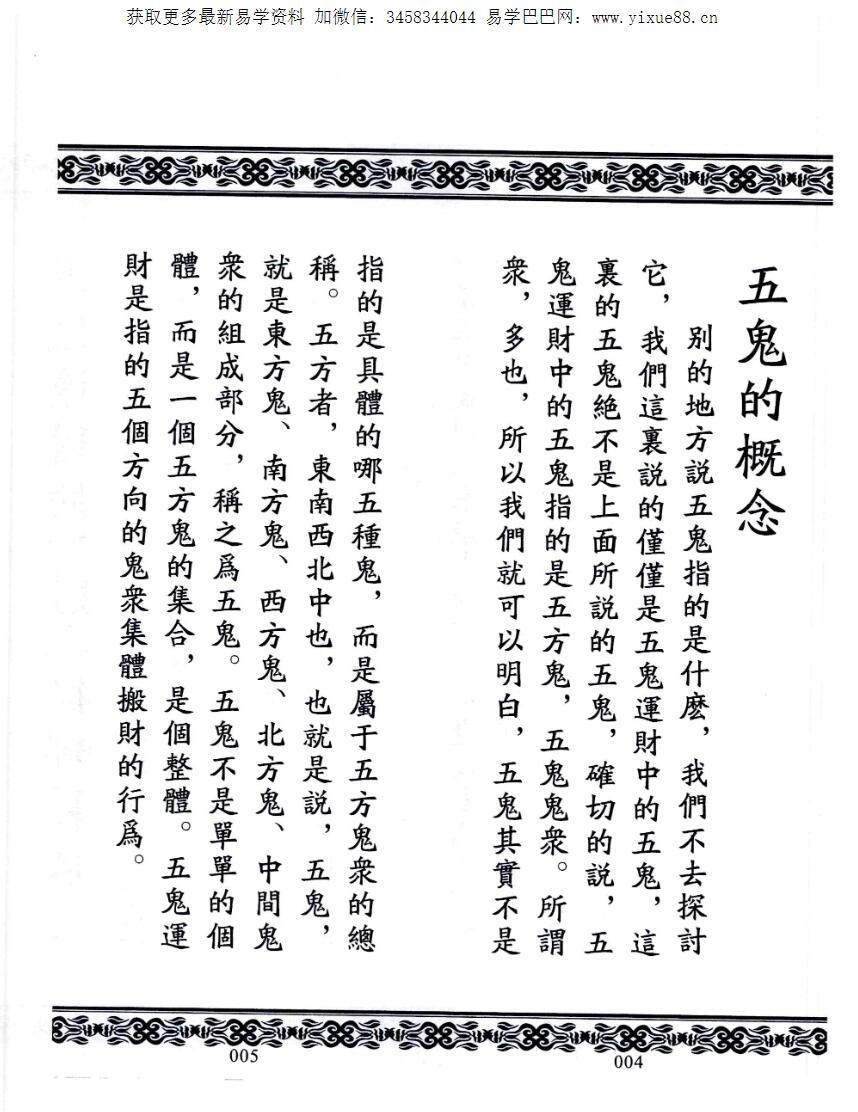 获取更多最新易学资料 加微信：3458344044 易学巴巴网：www.yixue88.cn
五鬼的概念
别的地方説五鬼指的是什麽，我們不去探討
它，我們這裏説的僅僅是五鬼運財中的五鬼，這
裏的五鬼絶不是上面所説的五鬼，確切的説，五
鬼運財中的五鬼指的是五方鬼，五鬼鬼衆。所謂
衆，多也，所以我們就可以明白，五鬼其實不是
004
指的是具體的哪五種鬼，而是屬于五方鬼衆的總
稱。五方者，東南西北中也，也就是説，五鬼，
就是東方鬼、南方鬼、西方鬼、北方鬼、中間鬼
衆的組成部分，稱之爲五鬼。五鬼不是單單的個
體，而是一個五方鬼的集合，是個整體。五鬼運
財是指的五個方向的鬼衆集體搬財的行爲。
005